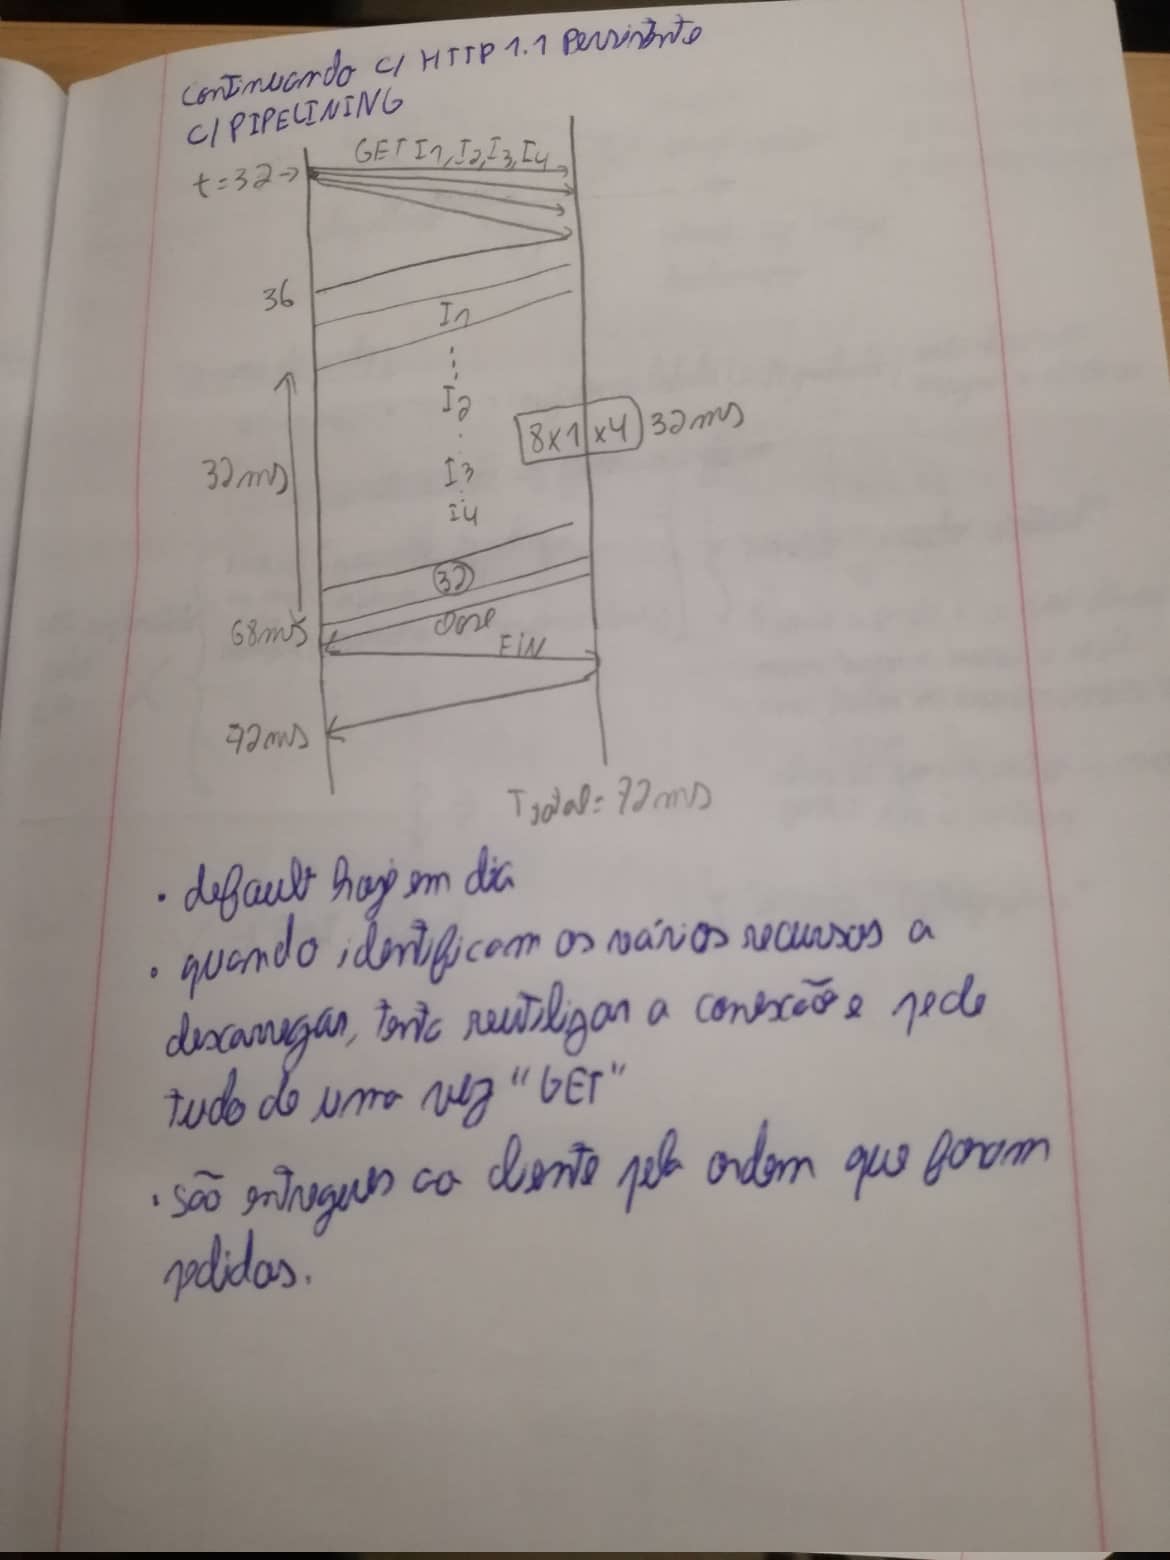 continuando c/ HTTP 1.1 Persistente
C/ PIPELINING
GET I1, I2, I3, I4
t=32->
36
I1
I2
8x1 x4 32ms
32ms
I3
I4
32
68ms
FIN
72ms
Total = 72ms
• default hoje em dia
• quando identificam os vários recursos a
descarregar, tenta reutilizar a conexão e pede
tudo de uma vez "GET"
• são entregues ao cliente pela ordem que foram
pedidas.